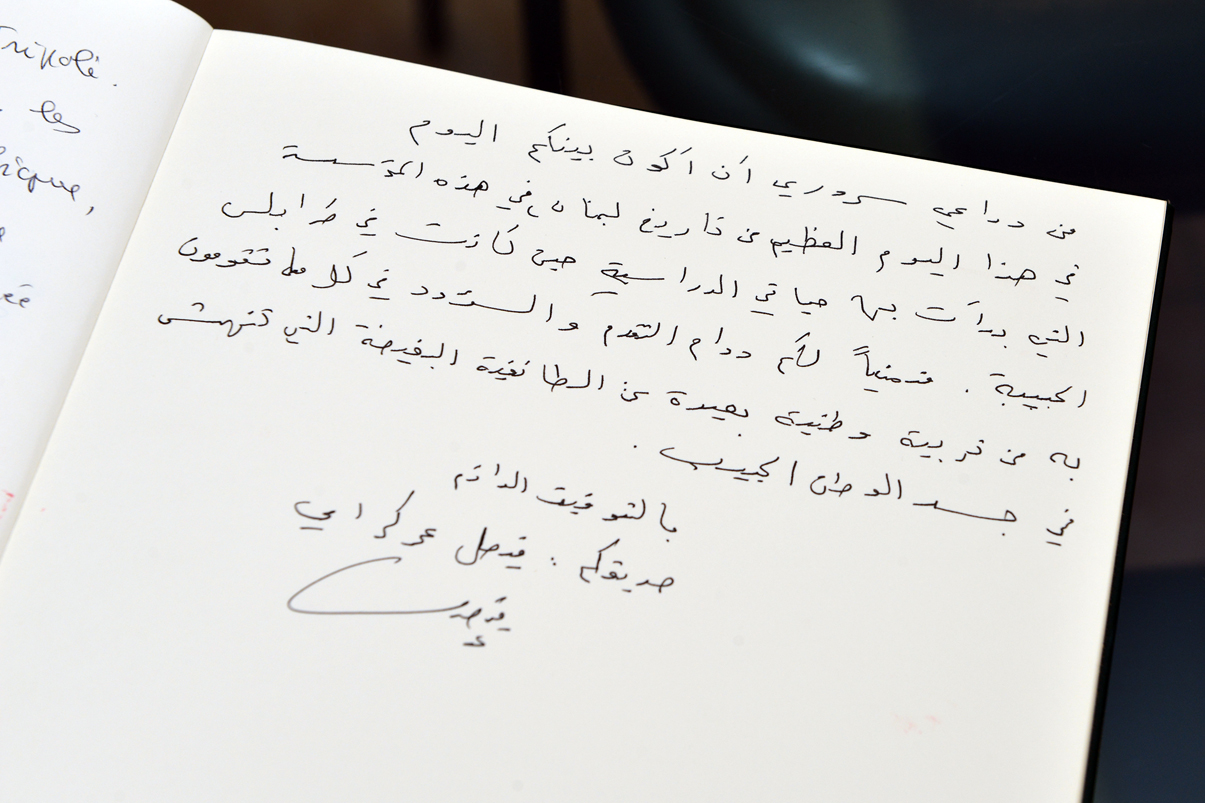 Tripoli.
les
من دواعي سروري أن أكون بينكم اليوم
في هذا اليوم العظيم من تاريخ لبنان، في هذه المؤسسة
التي بدأت بها حياتي الدراسية حين كانت في طرابلس
الحبيبة. متمنياً لكم دوام التقدم والسؤدد في كل ما تقومون
به من تربية وطنية بعيدة عن الطائفية البغيضة التي تنهش
في جسد الوطن الحبيب.
بالتوفيق الدائم
صديقكم: فيصل عمر كرامي